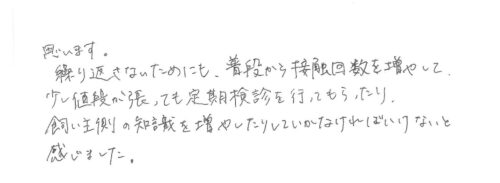 思います。
繰り返さないためにも、普段から接触回数を増やして、
少し値段が張っても定期検診を行ってもらったり、
飼い主側の知識を増やしたりしていかなければいけないと
感じました。